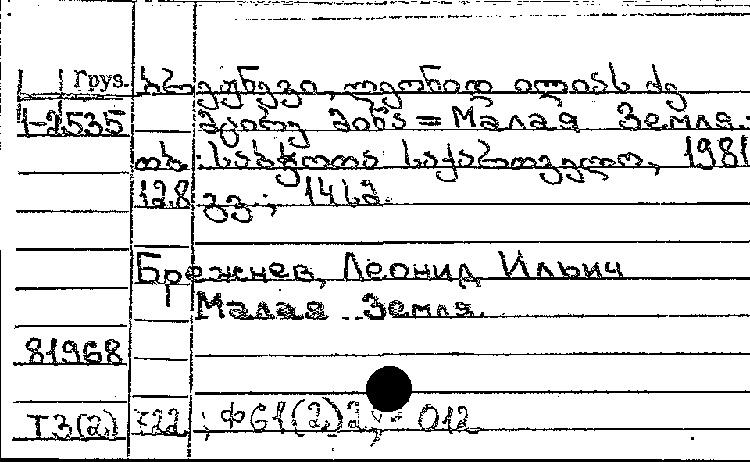 Груз. ბრეჟნევი, ლეონიდ ილიას ძე
1-2535 მცირე მიწა = Малая Земля.:
თბ.: საბჭოთა საქართველო, 1981
128 გვ.; 14 სმ.
Брежнев, Леонид Ильич
Малая Земля.
81968
Т3(2)